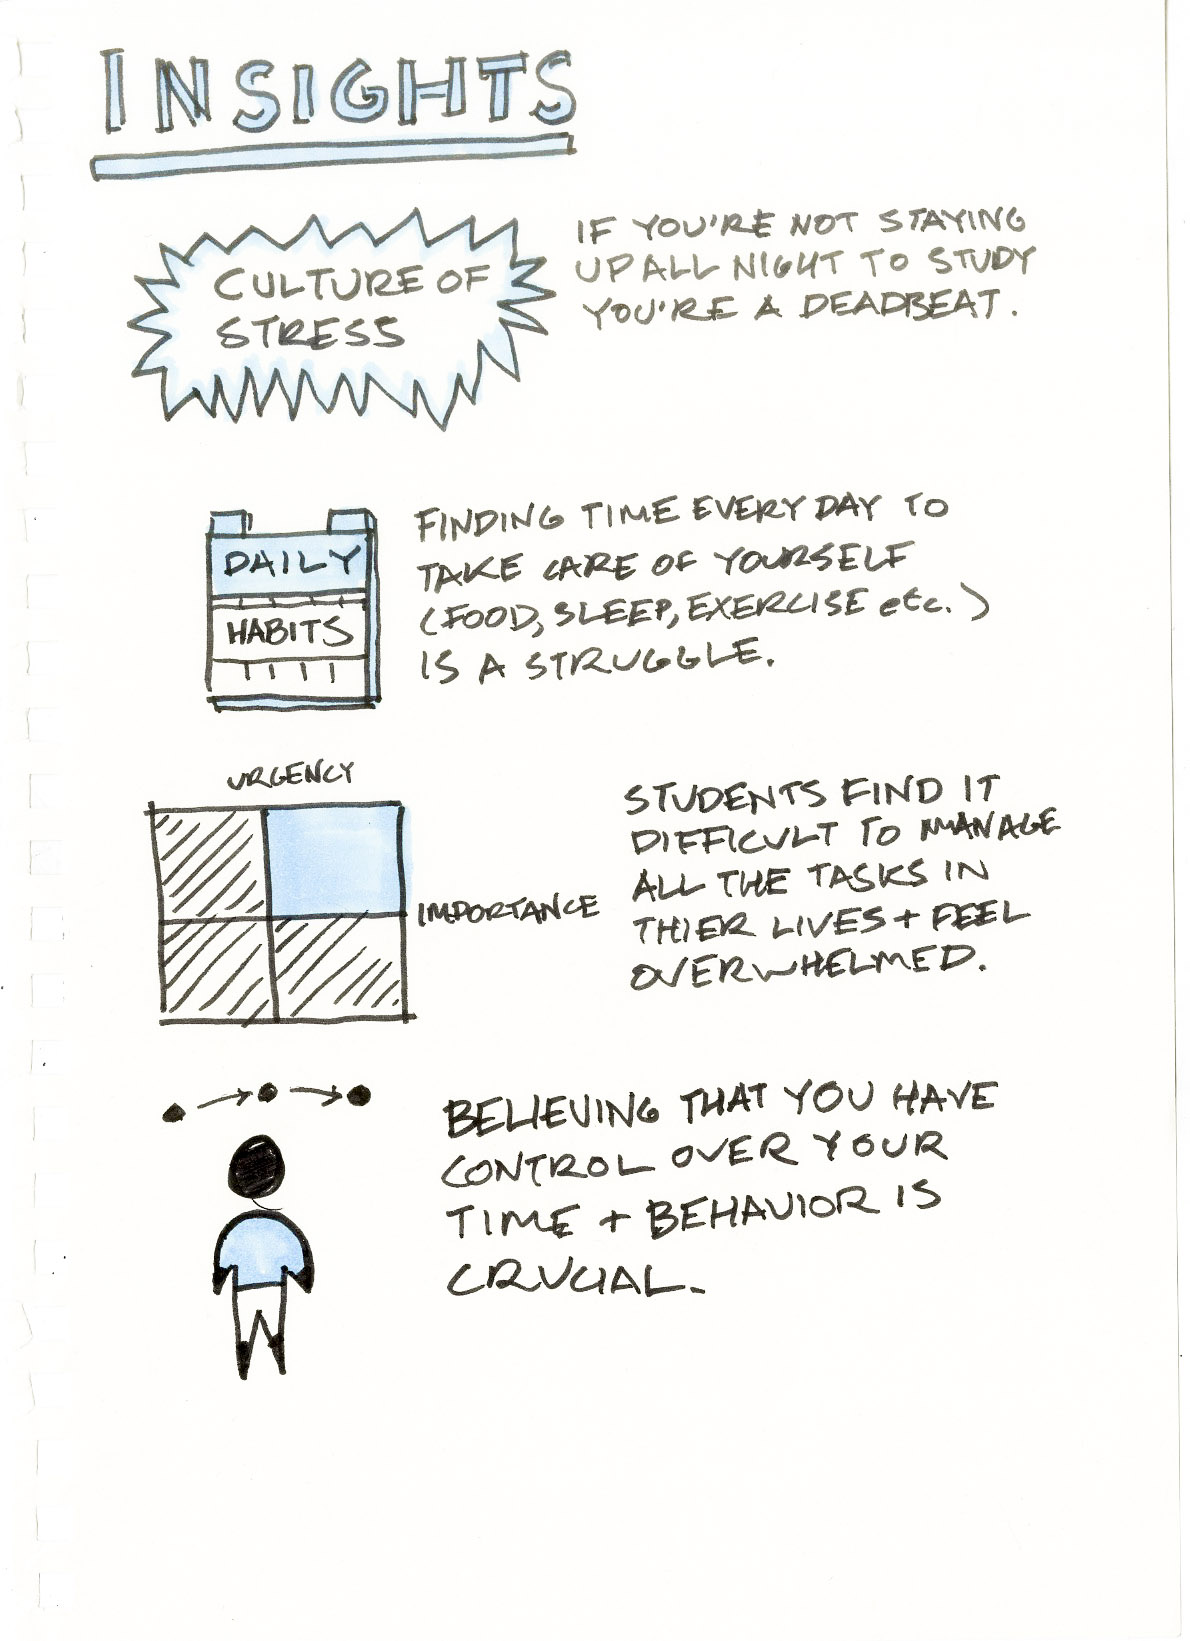 INSIGHTS
CULTURE OF
STRESS
IF YOU'RE NOT STAYING
UP ALL NIGHT TO STUDY
YOU'RE A DEADBEAT.
DAILY
HABITS
FINDING TIME EVERY DAY TO
TAKE CARE OF YOURSELF
(FOOD, SLEEP, EXERCISE etc.)
IS A STRUGGLE.
URGENCY
IMPORTANCE
STUDENTS FIND IT
DIFFICULT TO MANAGE
ALL THE TASKS IN
THIER LIVES + FEEL
OVERWHELMED.
BELIEVING THAT YOU HAVE
CONTROL OVER YOUR
TIME + BEHAVIOR IS
CRUCIAL.